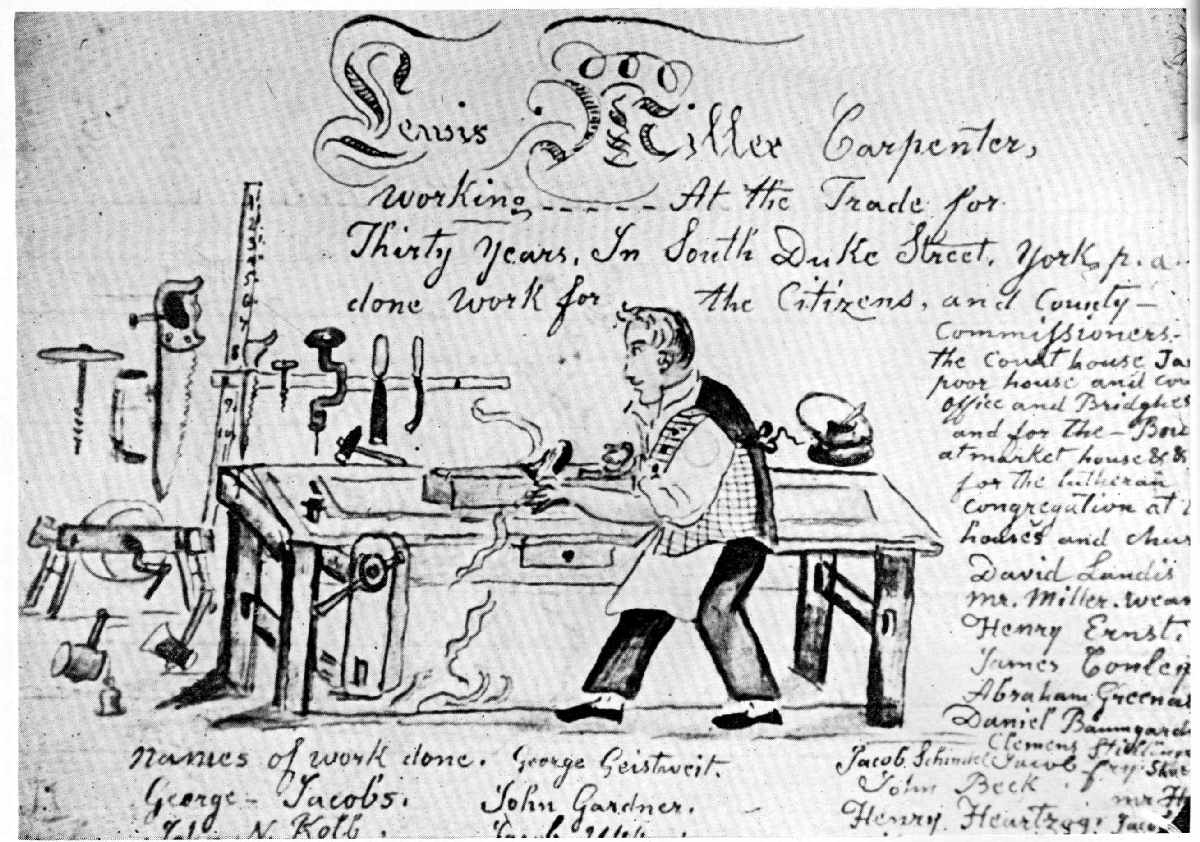 Lewis Miller Carpenter,
working ----- At the Trade for
Thirty Years. In South Duke Street. York, p. a.
done work for the Citizens. and County-
Commissioners.
the Court house Ja
poor house and cou
office and Bridghes
and for the - Boro
at market house &c &
for the lutheran
Congregation at
houses and chur
David Landis
mr. Miller. weav
Henry Ernst.
James Conley
Abraham Greenaw
Daniel Baumgard
Clemens
names of work done. George Geistweit.
Jacob. Schindel Jacob fry.
George - Jacobs. John Gardner.
John Beck. mr. H
John N. Kolb.
Henry. Heartzog. Jacob